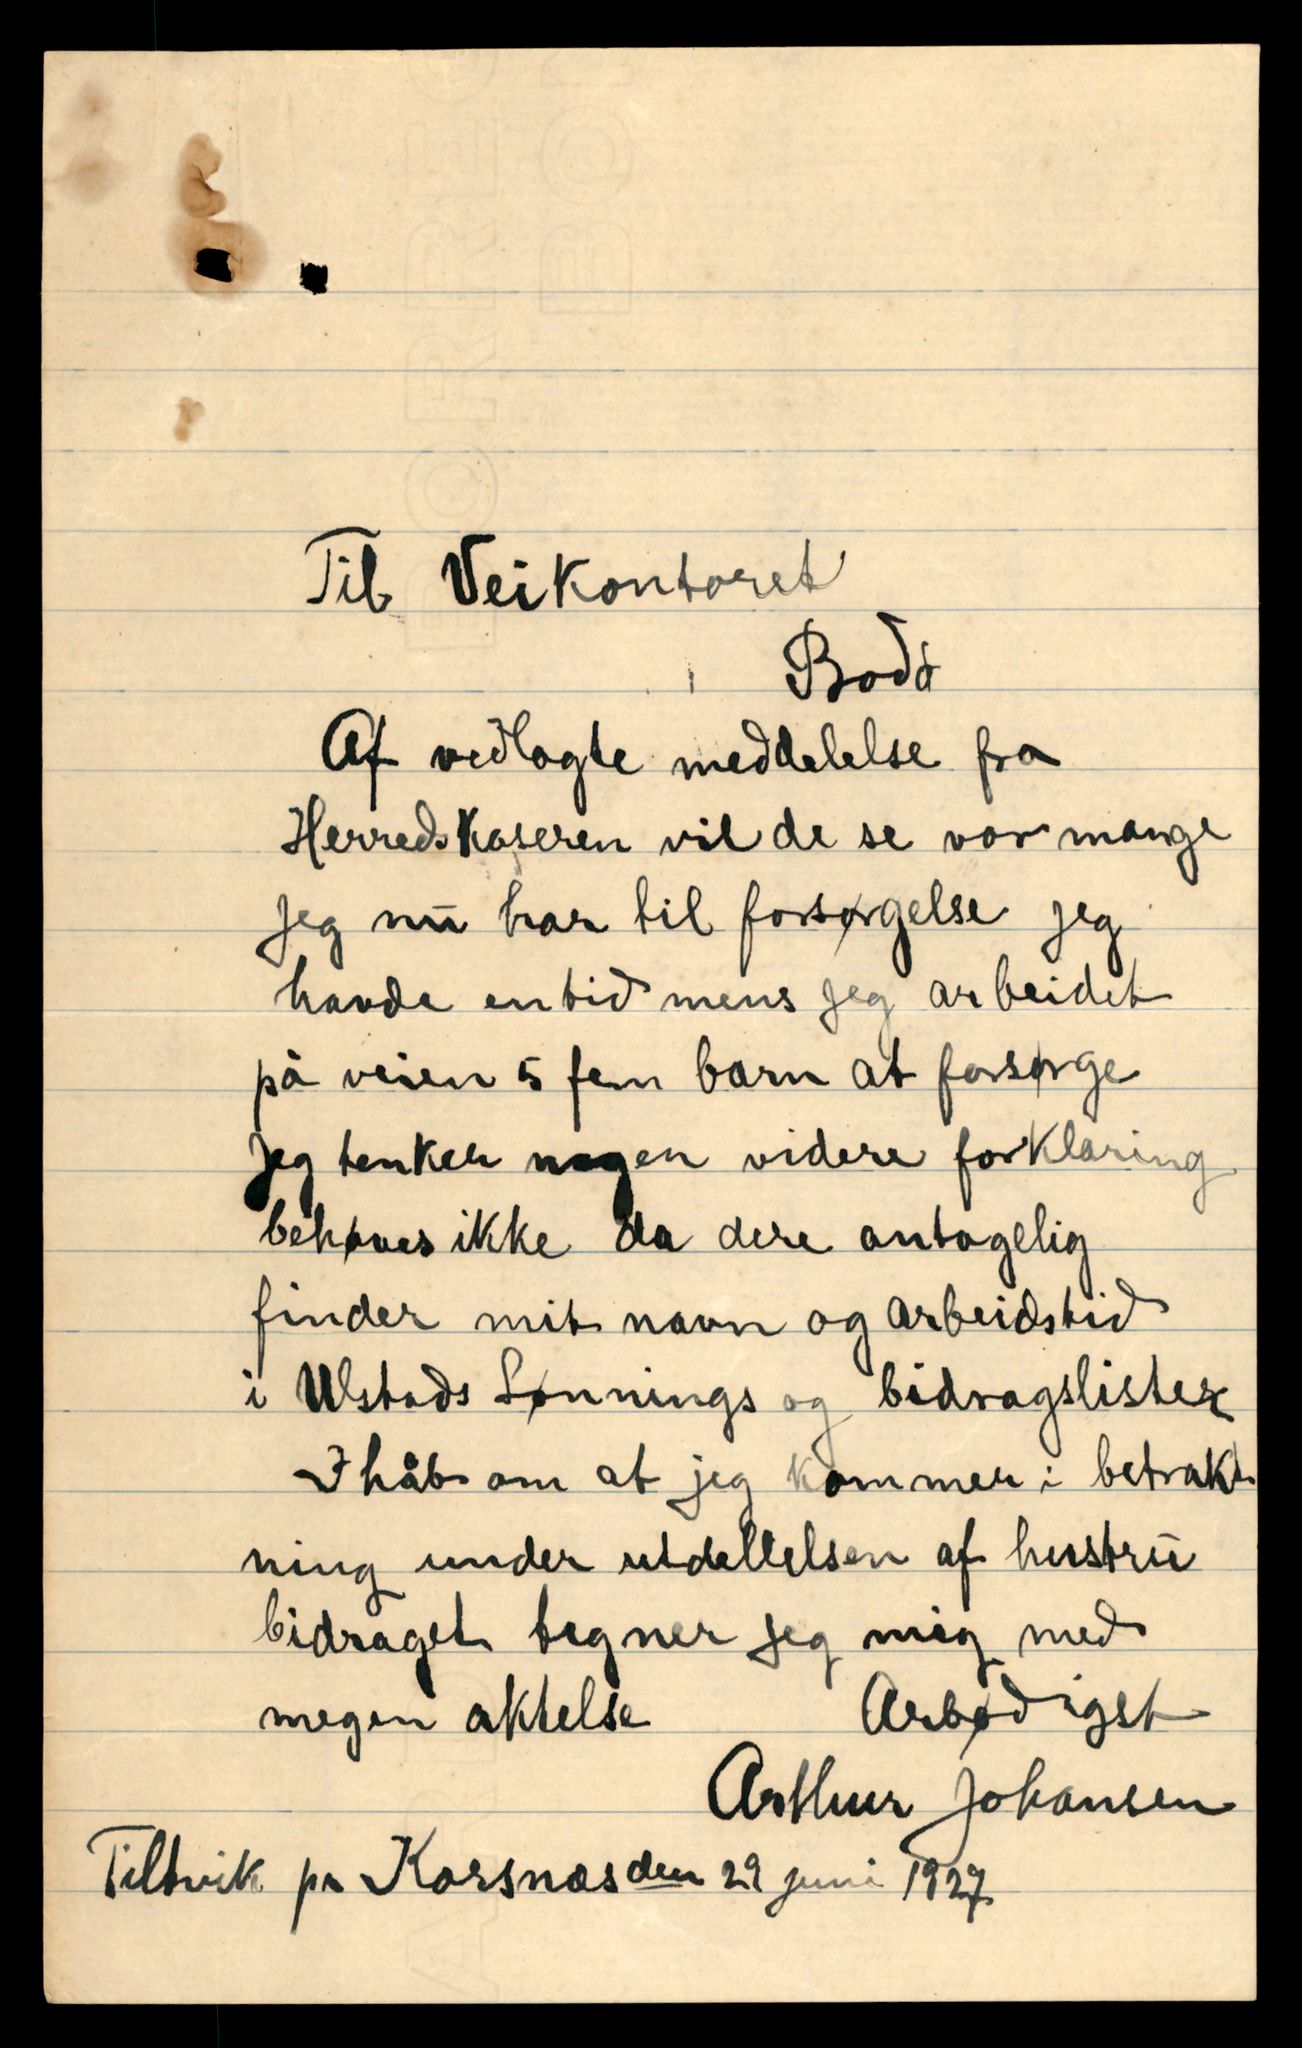 Til Veikontoret
Bodø
Af vedlagte meddelelse fra
Herredskaseren vil de se vor mange
jeg nu har til forsørgelse jeg
havde entid mens jeg arbeidet
på veien 5 fem barn at forsørge
jeg tenker nogen videre forklaring
behøves ikke da dere antagelig
finder mit navn og arbeidstid
i Ulstads Lønnings og bidragslister
I håb om at jeg kommer i betrakt
ning under utdellelsen af hustru
bidraget tegner jeg mig med
megen aktelse Arbødigst
Arthur Johansen
Tiltvik pr Korsnæs den 29 juni 1927